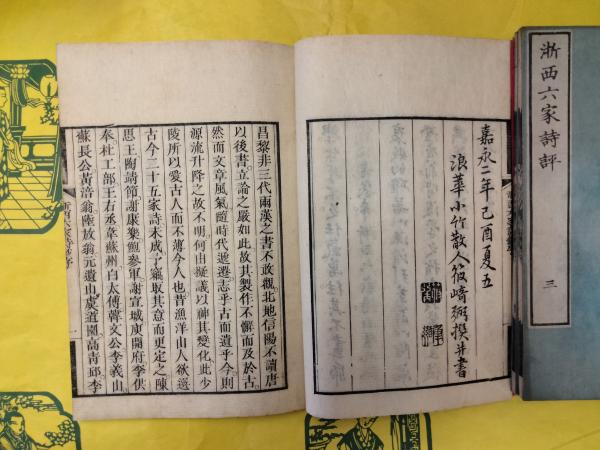 浙西六家詩評
三
嘉永二年己酉夏五
浪華小竹散人筱崎弼撰并書
昌黎非三代兩漢之書不敢觀北地信陽不讀唐
以後書立論之嚴如此故其製作不懈而及於古
然而文章風氣隨時代遞遷志乎古而遺乎今則
源流升降之故不明何由擬議以神其變化此少
陵所以愛古人而不薄今人也昔漁洋山人欲選
古今二十五家詩未成了竊取其意而更定之陳
思王陶靖節謝康樂鮑參軍謝宣城庾開府李供
奉杜工部王右丞韋蘇州白太傅韓文公李義山
蘇長公黃涪翁陸放翁元遺山虞道園高青邱李